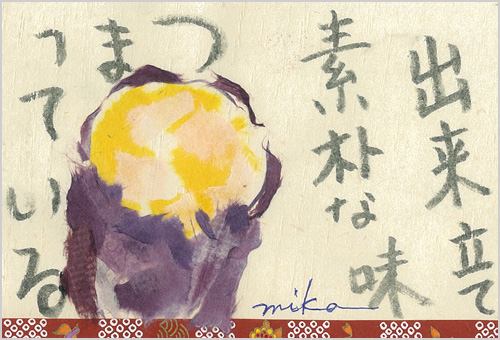 出来立て
素朴な味
つまっている
mika